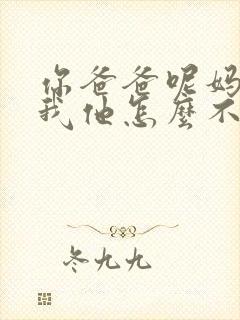 你爸爸呢妈
我他怎麽不
冬九九